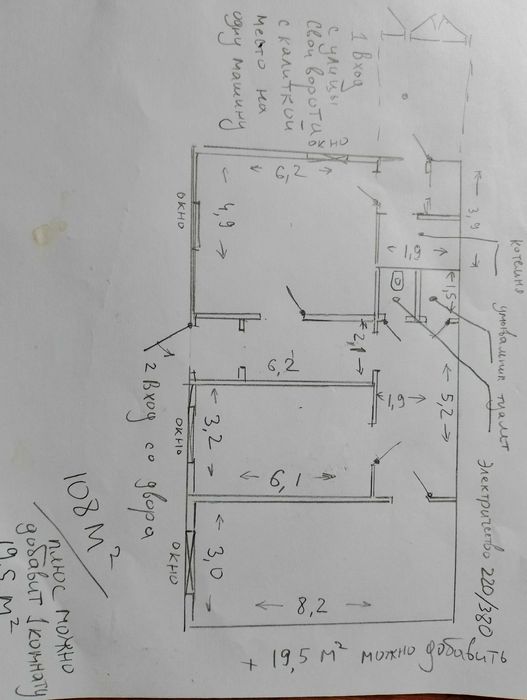 1 вход
с улицы
свои вороти
с калиткой
место на
одну машину
ОКНО
6,2
4,9
3,9
1,9
1,5
котельня
умывальник туалет
2,1
6,2
2 вход со двора
1,9
5,2
ОКНО
3,2
6,1
Электричество 220/380
ОКНО
3,0
8,2
108 м²
плюс можно
добавит 1 комнату
19,5 м²
+ 19,5 м² можно добавить